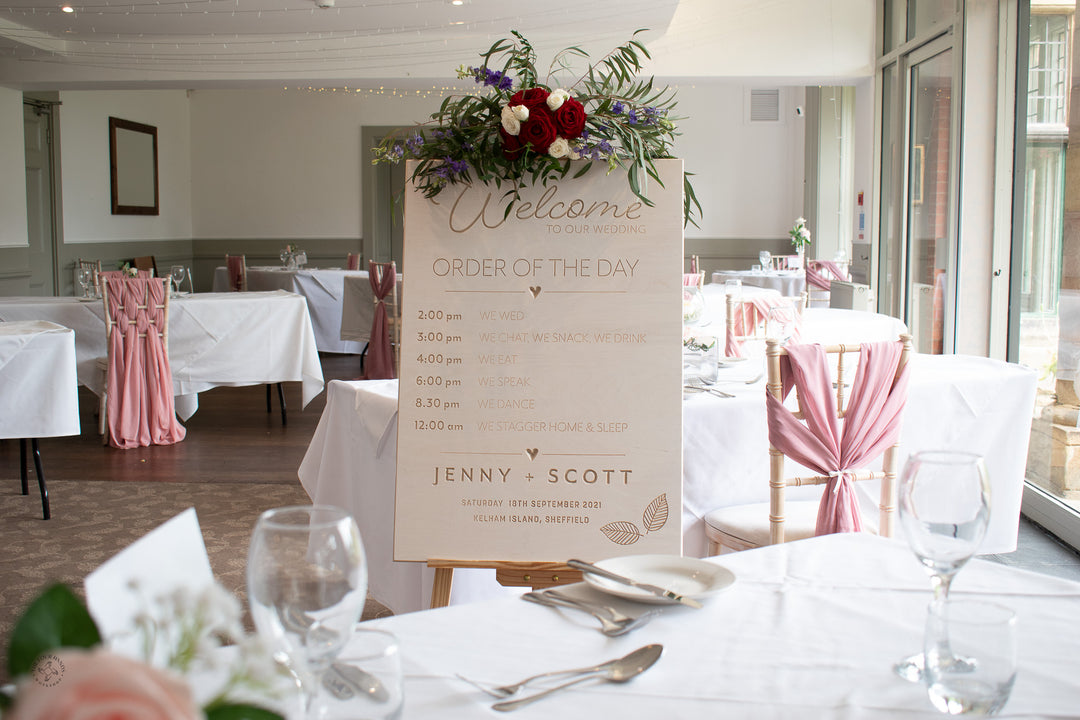 Welcome
TO OUR WEDDING
ORDER OF THE DAY
2:00 pm WE WED
3:00 pm WE CHAT, WE SNACK, WE DRINK
4:00 pm WE EAT
6:00 pm WE SPEAK
8.30 pm WE DANCE
12:00 am WE STAGGER HOME & SLEEP
JENNY + SCOTT
SATURDAY 18TH SEPTEMBER 2021
KELHAM ISLAND, SHEFFIELD